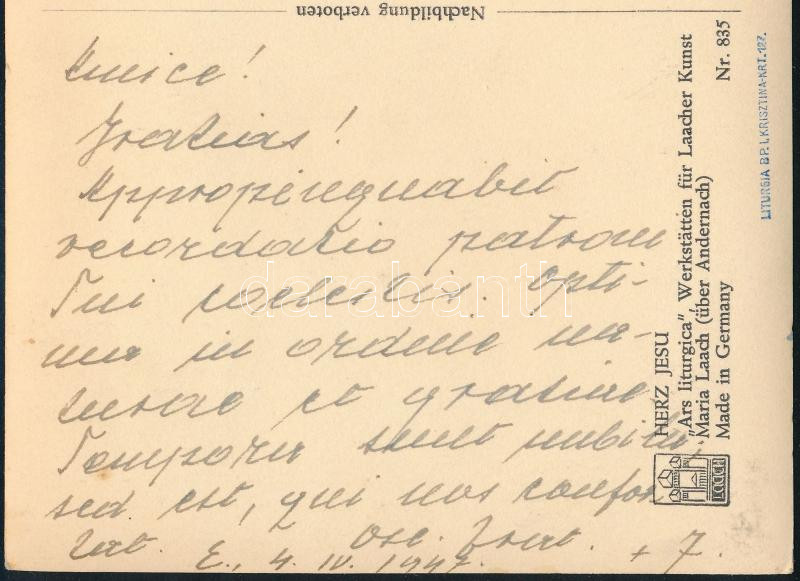 Nachbildung verboten
Amice!
Gratias!
Appropinquabit
recordatio patroni
Tui coelestis. Opti-
ma in ordine na-
turae et gratiae
Tempora sunt nubila,
sed est, qui nos confor-
tat. Osc. frat.
E., 4. IV. 1947. + 7.
HERZ JESU
"Ars liturgica", Werkstätten für Laacher Kunst
Maria Laach (über Andernach)
Made in Germany Nr. 835
LAACH
LITURGIA BP. I. KRISZTINA-KRT. 127.
darabanth